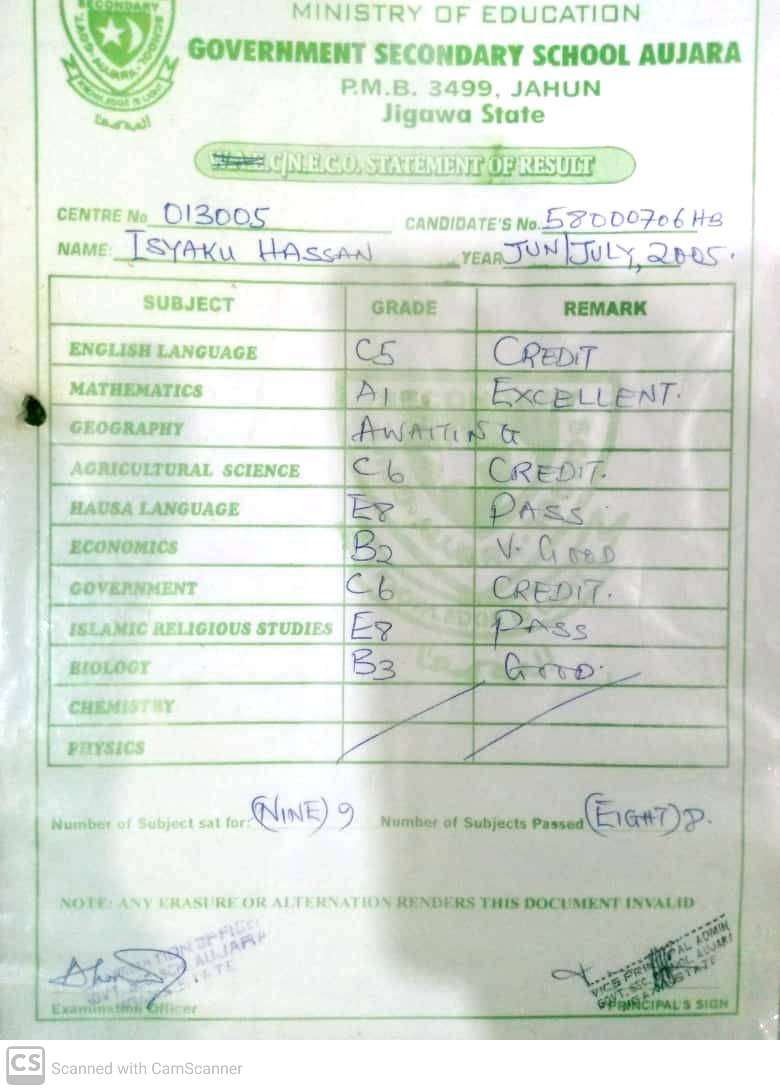 SECONDARY
SCHOOL
GOVT.
AUJARA
KNOWLEDGE IS LIGHT
MINISTRY OF EDUCATION
GOVERNMENT SECONDARY SCHOOL AUJARA
P.M.B. 3499, JAHUN
Jigawa State
C/N.E.C.O. STATEMENT OF RESULT
CENTRE No 013005 CANDIDATE'S No. 58000706HB
NAME: ISYAKU HASSAN YEAR JUN/JULY, 2005.
SUBJECT GRADE REMARK
ENGLISH LANGUAGE C5 CREDIT
MATHEMATICS A1 EXCELLENT.
GEOGRAPHY AWAITING
AGRICULTURAL SCIENCE C6 CREDIT.
HAUSA LANGUAGE E8 PASS
ECONOMICS B2 V. GOOD
GOVERNMENT C6 CREDIT.
ISLAMIC RELIGIOUS STUDIES E8 PASS
BIOLOGY B3 GOOD.
CHEMISTRY
PHYSICS
Number of Subject sat for: (NINE) 9 Number of Subjects Passed (EIGHT) 8.
NOTE: ANY ERASURE OR ALTERNATION RENDERS THIS DOCUMENT INVALID
VICE PRINCIPAL ADMIN
GOVT. SEC. SCHOOL AUJARA
Examination Officer PRINCIPAL'S SIGN
CS Scanned with CamScanner